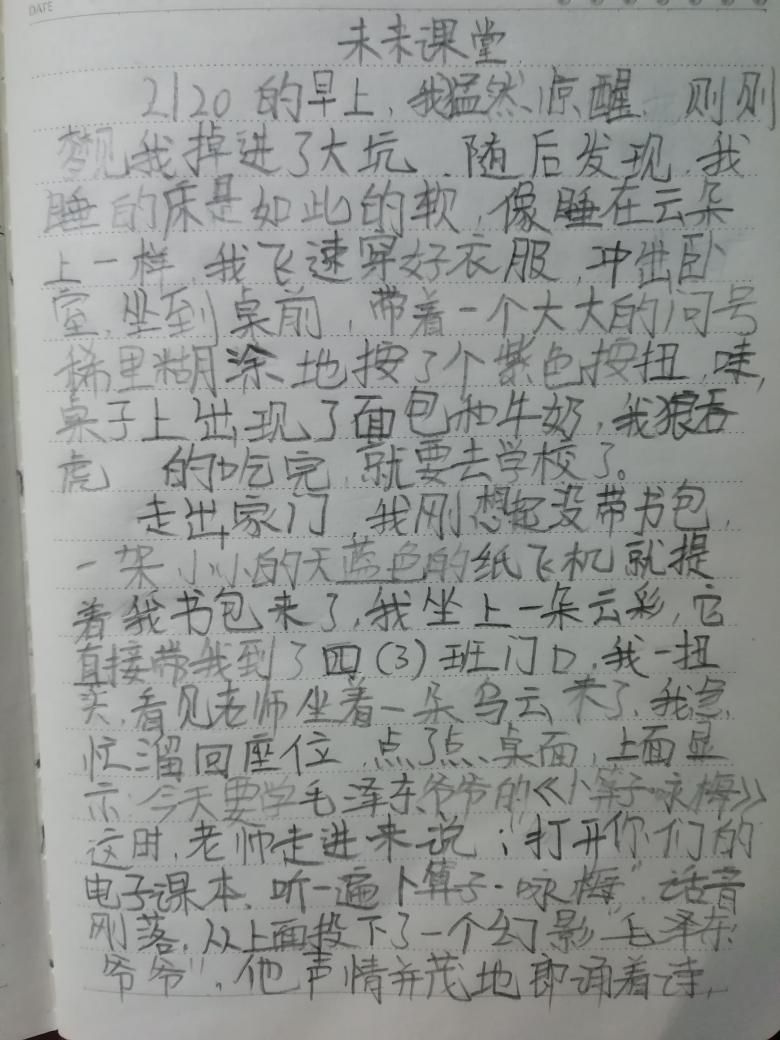 DATE
未来课堂
2120 的早上，我猛然惊醒，则则
梦见我掉进了大坑，随后发现，我
睡的床是如此的软，像睡在云朵
上一样，我飞速穿好衣服，冲出卧
室，坐到桌前，带着一个大大的问号
稀里糊涂地按了个紫色按扭，哇，
桌子上出现了面包和牛奶，我狼吞
虎 的吃完，就要去学校了。
走出家门，我刚想起没带书包，
一架小小的天蓝色的纸飞机就提
着我书包来了，我坐上一朵云彩，它
直接带我到了四（3）班门口，我一扭
头，看见老师坐着一朵乌云来了，我急
忙溜回座位，点了点桌面，上面显
示：今天要学毛泽东爷爷的《卜算子·咏梅》
这时，老师走进来说：“打开你们的
电子课本，听一遍卜算子·咏梅”，话音
刚落，从上面投下了一个幻影“毛泽东
爷爷”。他声情并茂地郎诵着诗，